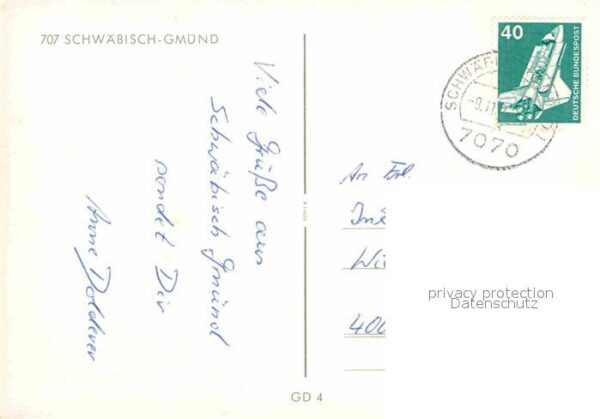 707 SCHWÄBISCH-GMÜND
Viele Grüße aus
Schwäbisch Gmünd
sendet Dir
Anne Dolderer
GD 4
40
DEUTSCHE BUNDESPOST
SCHWÄB
-9.11.
7070
An Frl.
Wi
400
privacy protection
Datenschutz